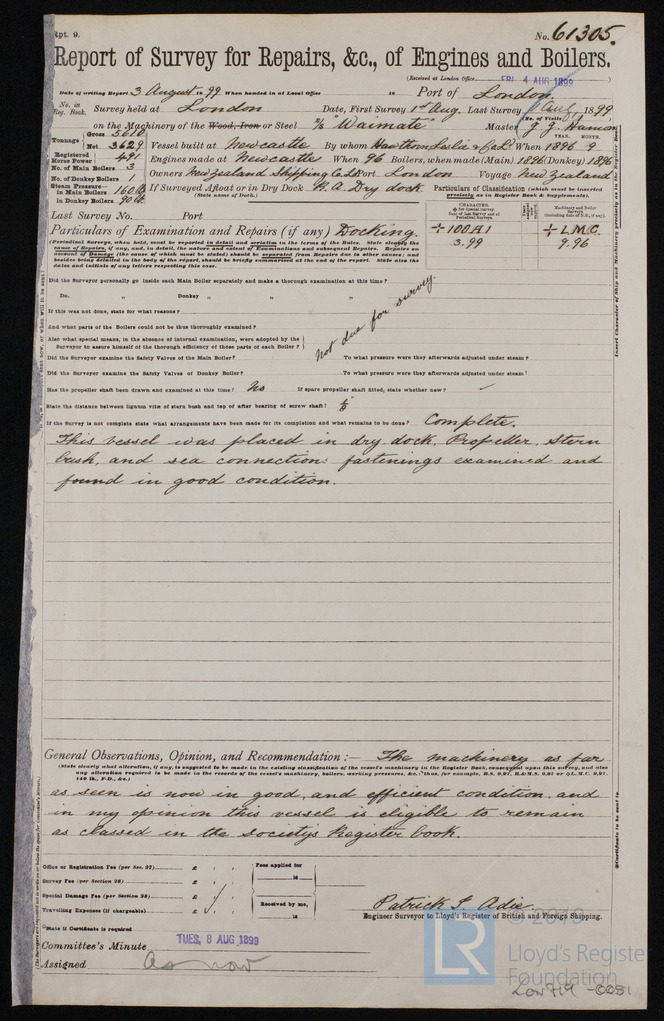 Rpt. 9.
No. 61305.
Report of Survey for Repairs, &c., of Engines and Boilers.
(Received at London Office FRI. 4 AUG 1899)
Date of writing Report 3 August 1899 When handed in at Local Office 18 Port of London.
No. in Reg. Book. Survey held at London Date, First Survey 1st Aug. Last Survey Aug 1899
(No. of Visits)
on the Machinery of the Wood, Iron or Steel S/s "Waimate" Master J. J.
Tonnage Gross
Net 3629 Vessel built at Newcastle By whom Hawthorn Leslie & Co Ld When 1896 9
YEAR. MONTH.
Registered Horse Power 491 Engines made at Newcastle When 96 Boilers, when made (Main) 1896 (Donkey) 1896
No. of Main Boilers 3
No. of Donkey Boilers 1 Owners New Zealand Shipping Co. Ld Port London Voyage New Zealand
Steam Pressure— in Main Boilers 160 lb
in Donkey Boilers 90 lb If Surveyed Afloat or in Dry Dock R. A. Dry dock.
(State name of Dock.)
Particulars of Classification (which must be inserted precisely as in Register Book & Supplements).
Last Survey No. Port
CHARACTER.
Machinery and Boiler Surveys
+ 100 A1 + L.M.C.
3.99 9.96
Particulars of Examination and Repairs (if any) Docking.
(Periodical Surveys, when held, must be reported in detail and seriatim in the terms of the Rules. State clearly the
cause of Repairs, if any, and, in detail, the nature and extent of Examinations and subsequent Repairs. Repairs on
account of Damage (the cause of which must be stated) should be separated from Repairs due to other causes; and
besides being detailed in the body of the report, should be briefly summarised at the end of the report. State also the
dates and initials of any letters respecting this case.
Did the Surveyor personally go inside each Main Boiler separately and make a thorough examination at this time?
Do. " Donkey " " "
If this was not done, state for what reasons?
And what parts of the Boilers could not be thus thoroughly examined?
Not due for survey.
Also what special means, in the absence of internal examination, were adopted by the
Surveyor to assure himself of the thorough efficiency of those parts of each Boiler?
Did the Surveyor examine the Safety Valves of the Main Boiler? To what pressure were they afterwards adjusted under steam?
Did the Surveyor examine the Safety Valves of Donkey Boiler? To what pressure were they afterwards adjusted under steam?
Has the propeller shaft been drawn and examined at this time? No If spare propeller shaft fitted, state whether new?
State the distance between lignum vitæ of stern bush and top of after bearing of screw shaft?
If the Survey is not complete state what arrangements have been made for its completion and what remains to be done? Complete.
This vessel was placed in dry dock, Propeller, stern
bush, and sea connections fastenings examined and
found in good condition.
General Observations, Opinion, and Recommendation:— The machinery as far
(State clearly what alteration, if any, is suggested to be made in the existing classification of the vessel's machinery in the Register Book, consequent upon this survey, and also
any alteration required to be made in the records of the vessel's machinery, boilers, working pressures, &c.
as seen is now in good, and efficient condition, and
in my opinion this vessel is eligible to remain
as classed in the society's Register book.
Office or Registration Fee (per Sec. 27) £ : :
Survey Fee (per Section 28) £ : :
Special Damage Fee (per Section 28) £ : :
Travelling Expenses (if chargeable) £ : :
Fees applied for
18
Received by me,
18
Patrick F Adie.
Engineer Surveyor to Lloyd's Register of British and Foreign Shipping.
State if Certificate is required
Committee's Minute TUES. 8 AUG 1899
Assigned As now
LR
© 2019
Lloyd's Registe
Foundation
Lon 719 - 0051